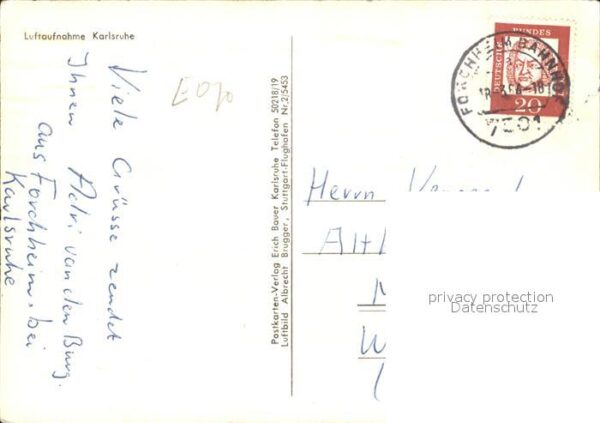 Luftaufnahme Karlsruhe
Viele Grüsse sendet
Ihnen Adri van den Burg.
aus Forchheim bei
Karlsruhe.
Postkarten-Verlag Erich Bauer Karlsruhe Telefon 50218/19
Luftbild Albrecht Brugger, Stuttgart-Flughafen Nr. 2/5453
DEUTSCHE BUNDES
20
FORCHHEIM BAHNHOF
7501
Herrn
privacy protection
Datenschutz